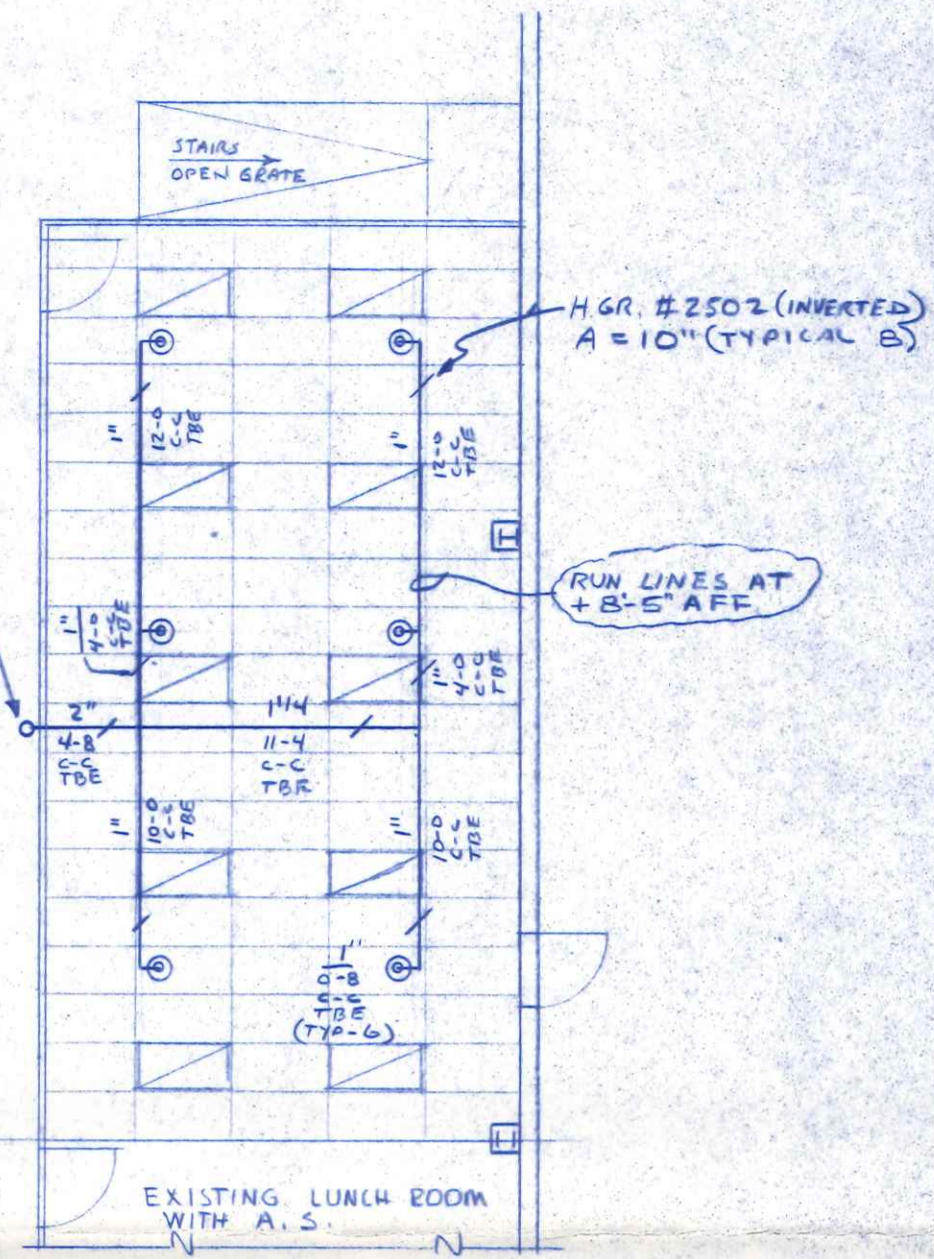 STAIRS
OPEN GRATE
HGR. #2502 (INVERTED)
A = 10" (TYPICAL 8)
1"
12-0
C-C
TBE
1"
12-0
C-C
TBE
RUN LINES AT
+ 8'-5" AFF
1"
4-0
C-C
TBE
1"
4-0
C-C
TBE
2"
4-8
C-C
TBE
1 1/4
11-4
C-C
TBE
1"
10-0
C-C
TBE
1"
10-0
C-C
TBE
1"
0-8
C-C
TBE
(TYP-6)
EXISTING LUNCH ROOM
WITH A.S.